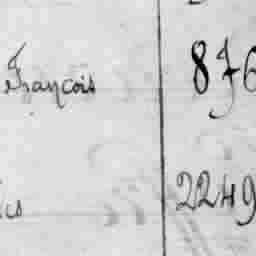 François 876
2249